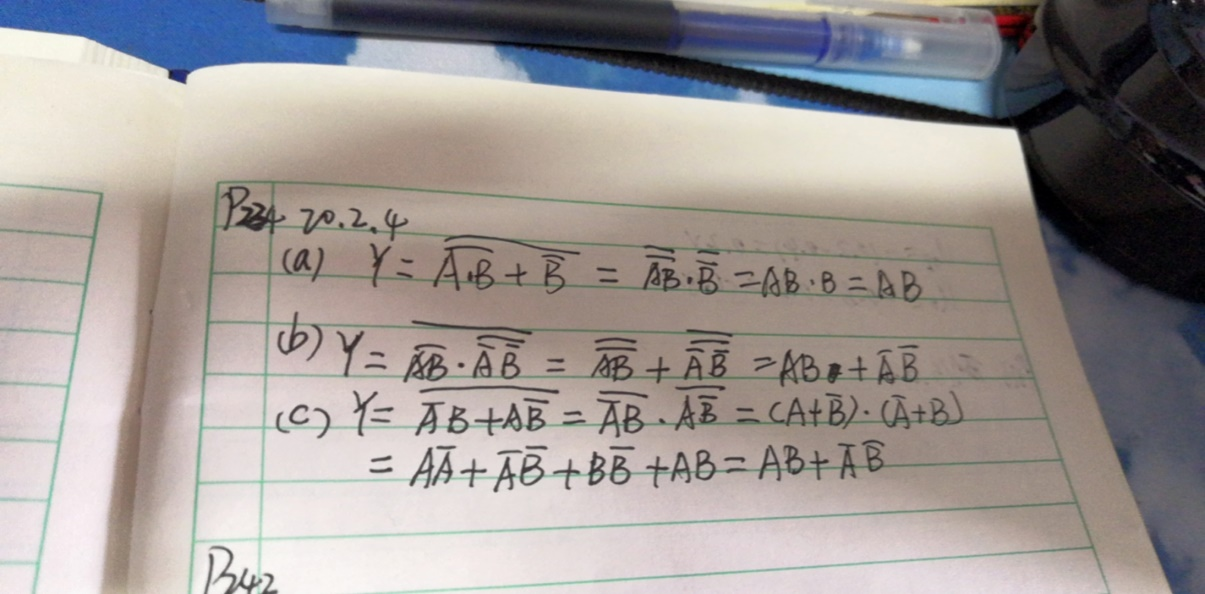 P234 20.2.4
(a) Y = \overline{\overline{A·B} + \overline{B}} = \overline{\overline{AB}}·\overline{\overline{B}} = AB·B = AB
(b) Y = \overline{\overline{AB}·\overline{\overline{A}\,\overline{B}}} = \overline{\overline{AB}} + \overline{\overline{\overline{A}\,\overline{B}}} = AB + \overline{A}\,\overline{B}
(c) Y = \overline{\overline{A}B + A\overline{B}} = \overline{\overline{A}B}·\overline{A\overline{B}} = (A+\overline{B})·(\overline{A}+B)
= A\overline{A} + \overline{A}\,\overline{B} + B\overline{B} + AB = AB + \overline{A}\,\overline{B}